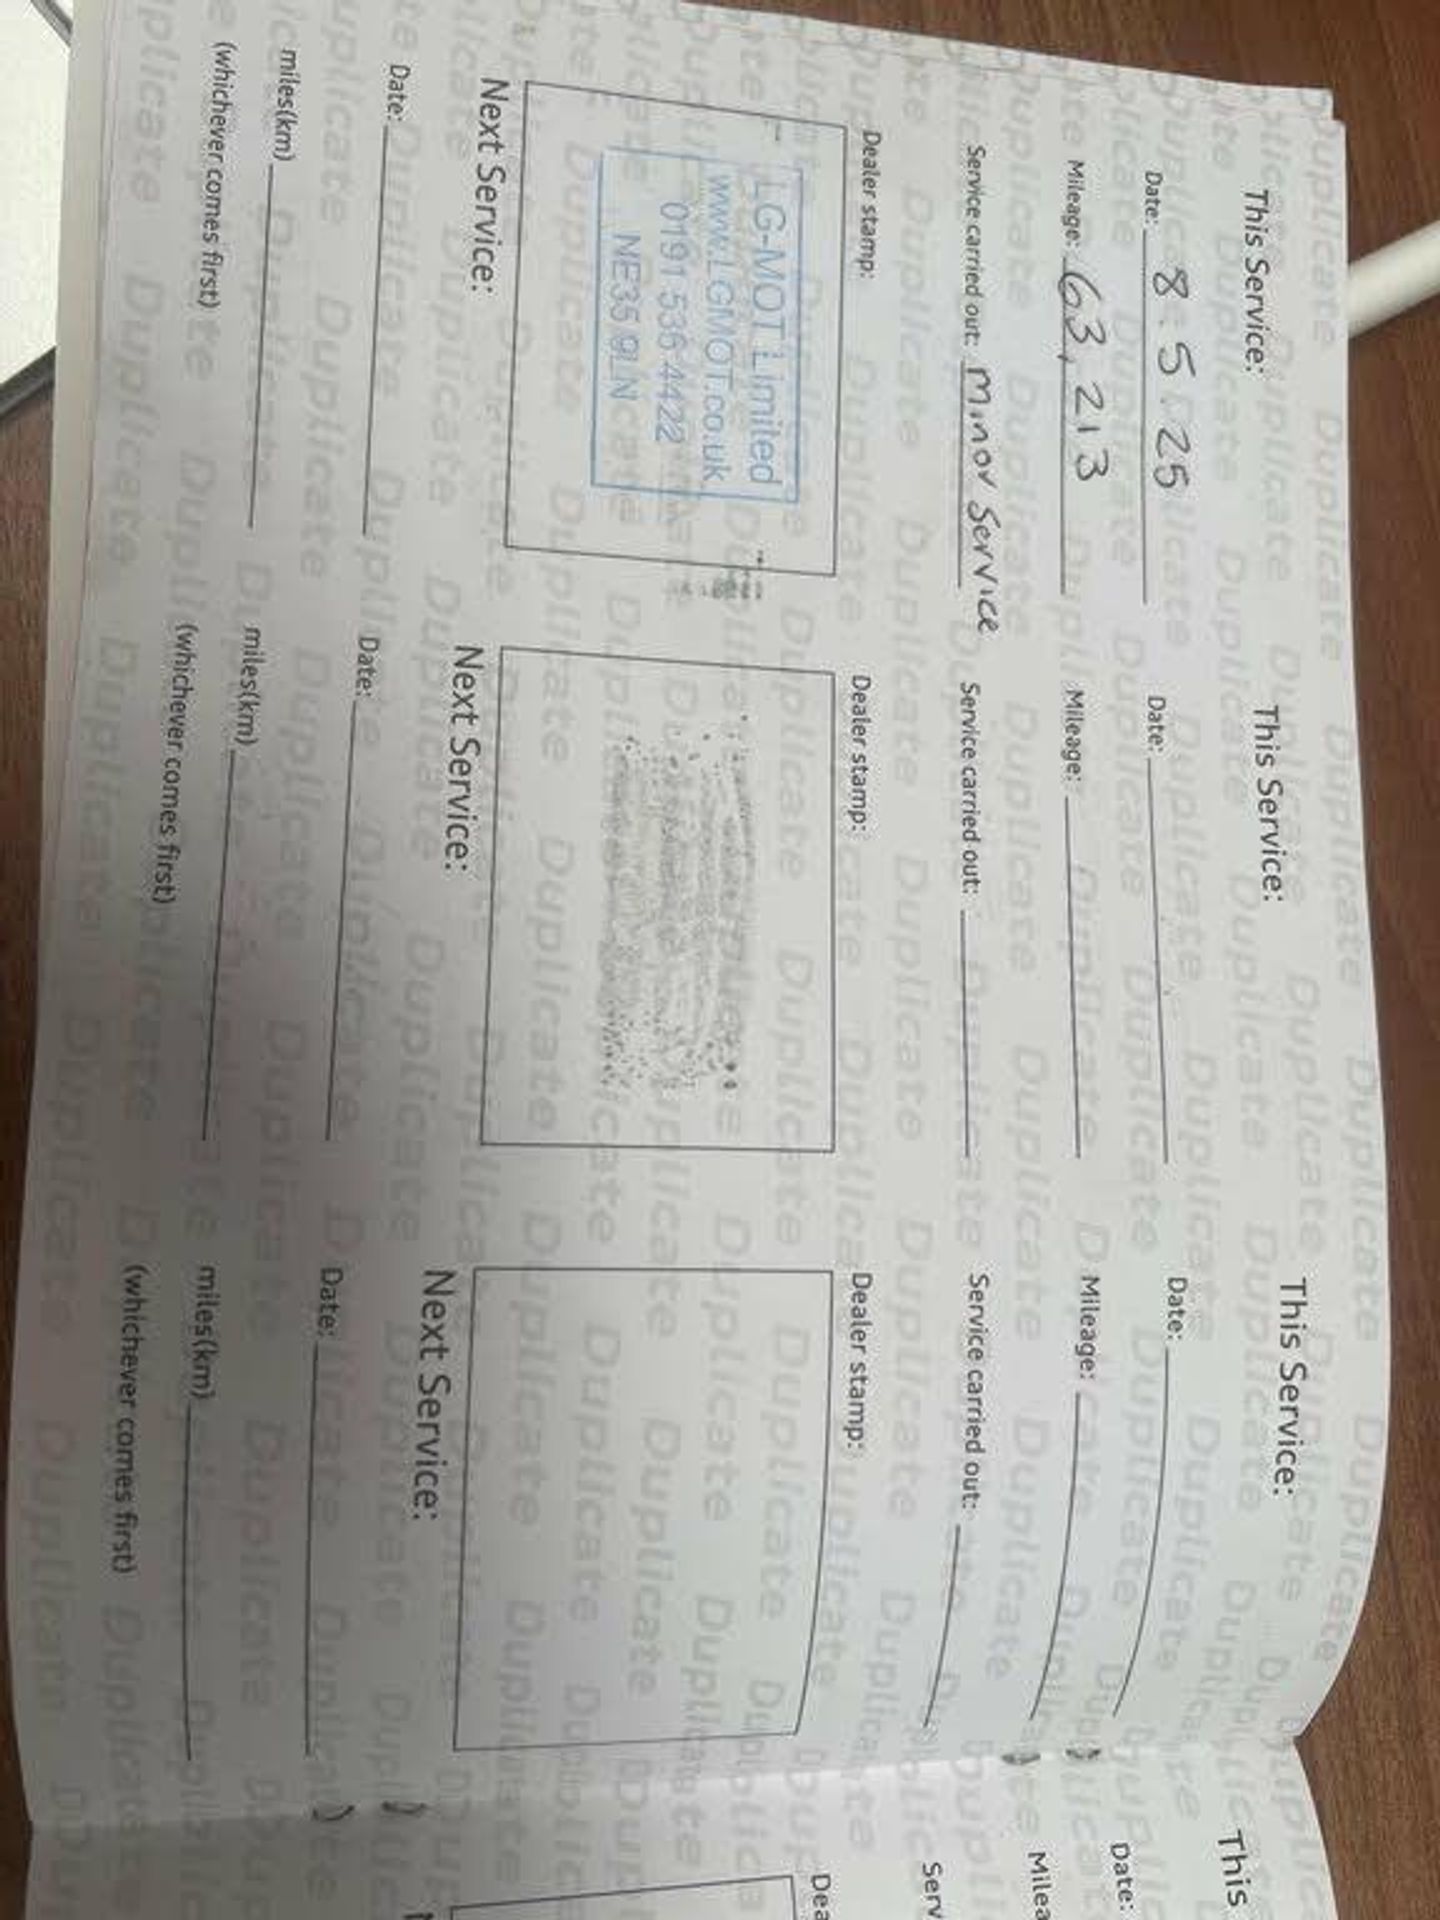 This Service:
Date: 8.5.25
Mileage: 63,213
Service carried out: Minor Service
Dealer stamp:
LG-MOT Limited
www.LGMOT.co.uk
0191 536 4422
NE35 9LN
Next Service:
Date:
miles(km)
(whichever comes first)
This Service:
Date:
Mileage:
Service carried out:
Dealer stamp:
Next Service:
Date:
miles(km)
(whichever comes first)
This Service:
Date:
Mileage:
Service carried out:
Dealer stamp:
Next Service:
Date:
miles(km)
(whichever comes first)
This
Date:
Milea
Serv
Dea
Duplicate Duplicate Duplicate Duplicate Duplicate